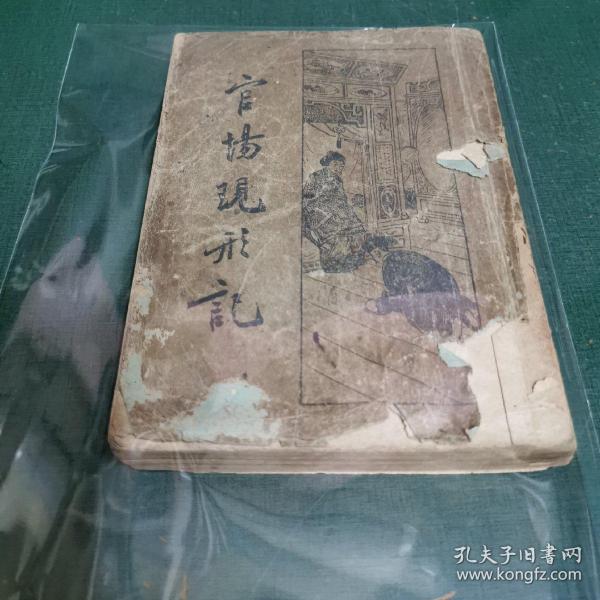 官場現形記
孔夫子旧書网
www.kongfz.com